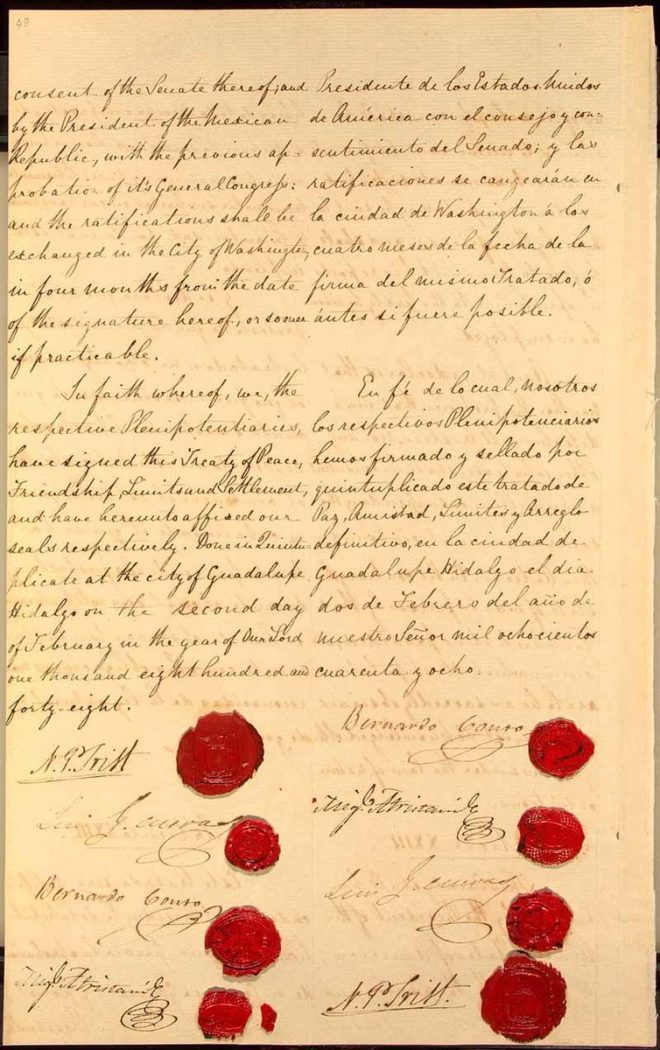 43
consent of the Senate thereof; and
by the President of the Mexican
Republic, with the previous ap-
probation of it's General Congress:
and the ratifications shall be
exchanged in the City of Washington,
in four months from the date
of the signature hereof, or sooner
if practicable.
In faith whereof, we, the
respective Plenipotentiaries,
have signed this Treaty of Peace,
Friendship, Limits and Settlement,
and have hereunto affixed our
seals respectively. Done in Quintu-
plicate at the city of Guadalupe
Hidalgo on the second day
of February in the year of Our Lord
one thousand eight hundred and
forty-eight.
N. P. Trist
Luis G. Cuevas
Bernardo Couto
Migl. Atristain
Presidente de los Estados Unidos
de América con el consejo y con=
sentimiento del Senado; y las
ratificaciones se cangearán en
la ciudad de Washington á los
cuatro meses de la fecha de la
firma del mismo Tratado, ó
ántes si fuere posible.
En fé de lo cual, nosotros
los respectivos Plenipotenciarios
hemos firmado y sellado por
quintuplicado este tratado de
Paz, Amistad, Límites y Arreglo
definitivo, en la ciudad de
Guadalupe Hidalgo el dia
dos de Febrero del año de
nuestro Señor mil ochocientos
cuarenta y ocho.
Bernardo Couto
Migl. Atristain
Luis G. Cuevas
N. P. Trist.